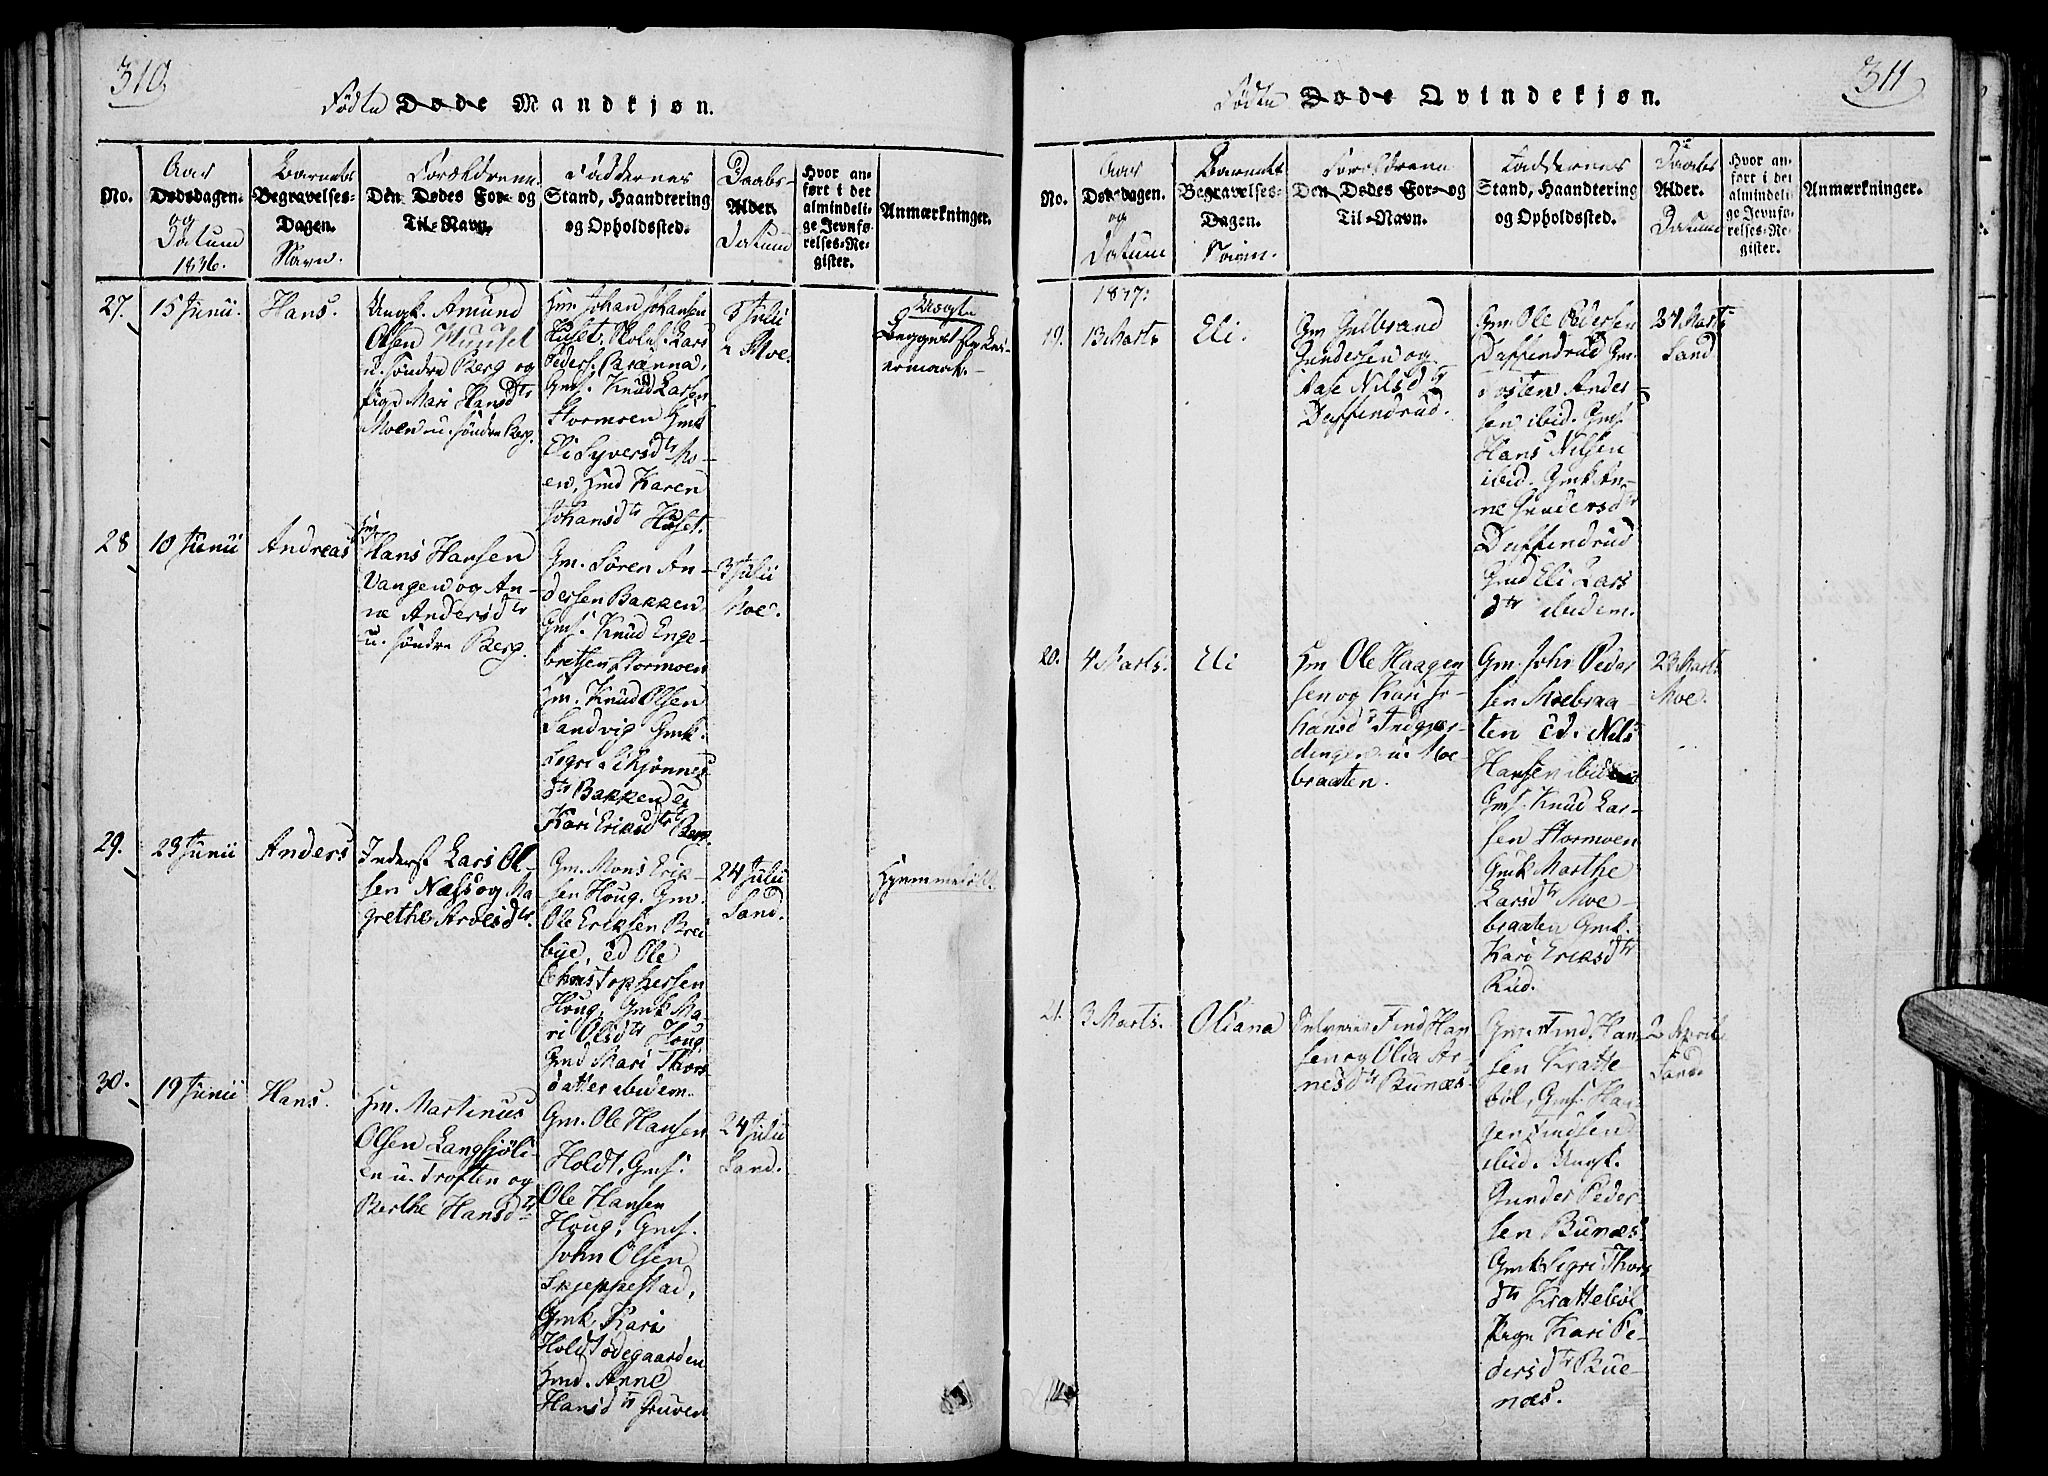 310.
Födte Døde Mandkjøn.
No.
Aar
Dødsdagen.
og
Datum
1836.
Barnets
Begravelses-
Dagen.
Navn.
Forældrenes
Den Dødes For- og
Til-Navn.
Faddernes
Stand, Haandtering
og Opholdssted.
Daabs-
Alder.
Datum
Hvor an-
ført i det
almindeli-
ge Jevnfø-
relses-Re-
gister.
Anmærkninger.
27.
15 Junii
Hans.
Ungk. Amund
Olsen
u. søndre Berg og
Pige Mari Hansdtr
Moen u. søndre Berg.
Hm. Johan Johansen
Huset, Lars
Peders.
Gmf. Knud Larsen
Stormoen Hmk
Eli Syversdtr Mo-
en, Hmd Karen
Johansdtr Huset.
Julii
Moe.
Uægte
28
10 Junii
Andreas
Hm.
Hans Hansen
Vangen og An-
ne Andersdtr
u. søndre Berg.
Gm. Søren An-
dersen Bakken,
Gmf. Knud Enge-
bretsen Stormoen
Gm. Knud Olsen
Sandvig Gmk.
Sigri
dtr Bakken
Kari Eriksdtr Berg.
3 Julii
Moe.
29.
29 Junii
Anders
Inderst Lars Ol-
sen Næss og Ma
grethe Arnesdtr.
Gm. Mons Erik-
sen Houg. Gm.
Ole Eriksen Brei
bye, ed Ole
Christophersen
Houg, Gmk Ma-
ri Olsdtr Houg
Gmd Mari Thors
datter ibidem.
24 Julii
Sand.
30.
19 Junii
Hans.
Hm. Martinus
Olsen Langsjöli-
en u. Troften og
Berthe Hansdtr
Gm. Ole Hansen
Holdt, Gmf.
Ole Hansen
Houg, Gmf.
John Olsen
Skjeppestad,
Gmk Kari
Holdtødegaarden
Hmd. Anne
Hansdtr Gruven
24 Julii
Sand.
311
Födte Døde Qvindekjøn.
No.
Aar
Dødsdagen.
og
Datum
Barnets
Begravelses-
Dagen.
Navn.
Forældrene
Den Dødes For- og
Til-Navn.
Faddernes
Stand, Haandtering
og Opholdssted.
Daabs
Alder.
Datum
Hvor an-
ført i det
almindeli-
ge Jevnfø-
relses-Re-
gister.
Anmærkninger.
1837.
19.
13 Marts
Eli.
Gm Gulbrand
Gundersen og
Aase Nilsdtr
Daffindrud.
Gm. Ole Pedersen
Daffindrud Gm.
Tosten Ander-
sen ibid. Gmf
Hans Nilsen
ibid. Gmk An-
ne Gundersdtr
Daffindrud
Gmd Eli Lars
dtr ibidem.
27 Marts
Sand
20.
4 Marts.
Eli
Hm Ole Haagen
sen og Kari Jo-
hansdtr Indgjær-
dingen u. Moe
braaten.
Gm. John Peder
sen Moebraa-
ten ed. Nils
Hansen ibid
Gmf. Knud Lar-
sen Stormoen
Gmk Marthe
Larsdtr Moe-
braaten Gmk.
Kari Eriksdtr
Rud.
23 Marts
Moe.
21.
3 Marts.
Oliana
Find Han
sen og Olia Ar-
nesdtr Bunæs.
Gm Find Han-
sen Kratte-
böl, Gmf. Haa-
gen Findsen
ibid. Ungk.
Gunder Peder
sen Bunæs
Gmk Sigri Thors
dtr Krattebøl
Pige Kari Pe-
dersdtr Bue-
næs.
2 April
Sand